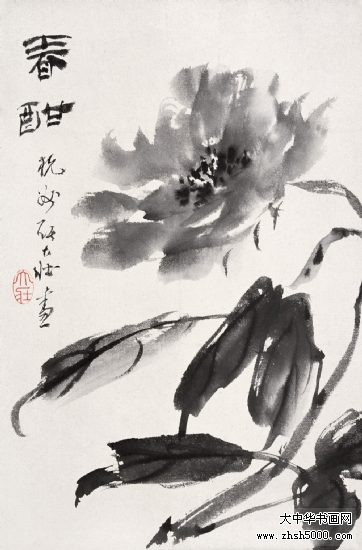 春酣
杭州顾大壮画
大壮
大中华书画网
www.zhsh5000.com